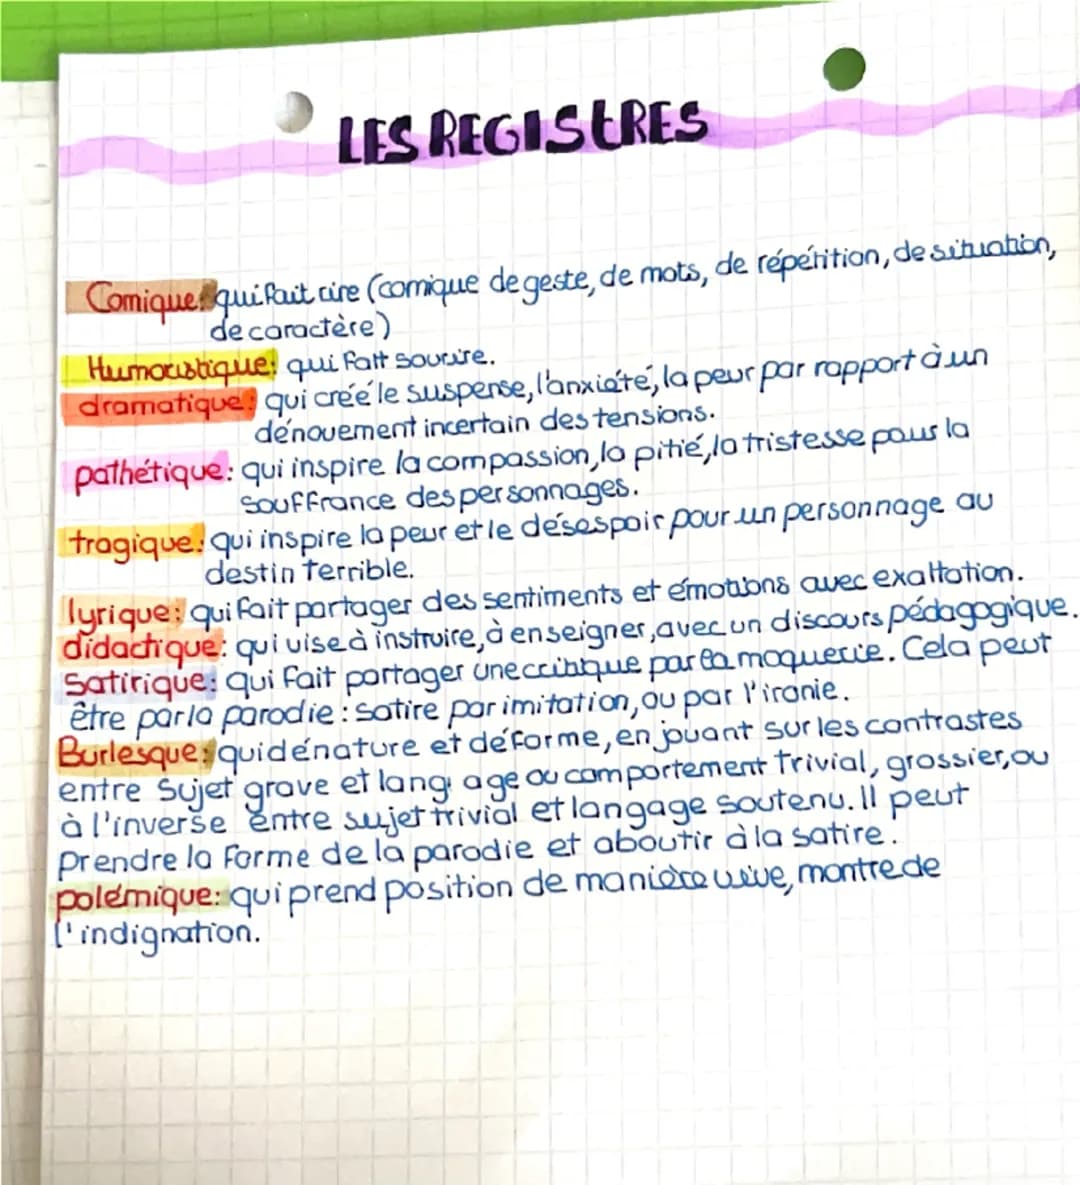 LES REGISTRES
Comique: qui fait rire (comique de geste, de mots, de répétition, de situation,
de caractère)
Humoristique: qui fait sourire.
dramatique: qui créé le suspense, l'anxiété, la peur par rapport à un
dénouement incertain des tensions.
pathétique: qui inspire la compassion, la pitié, la tristesse pour la
souffrance des personnages.
tragique: qui inspire la peur et le désespoir pour un personnage au
destin terrible.
lyrique: qui fait partager des sentiments et émotions avec exaltation.
didactique: qui vise à instruire, à enseigner, avec un discours pédagogique.
Satirique: qui fait partager une critique par la moquerie. Cela peut
être par la parodie: satire par imitation, ou par l'ironie.
Burlesque: qui dénature et déforme, en jouant sur les contrastes
entre sujet grave et langage ou comportement trivial, grossier, ou
à l'inverse entre sujet trivial et langage soutenu. Il peut
Prendre la forme de la parodie et aboutir à la satire.
polémique: qui prend position de manière vive, montre de
l'indignation.